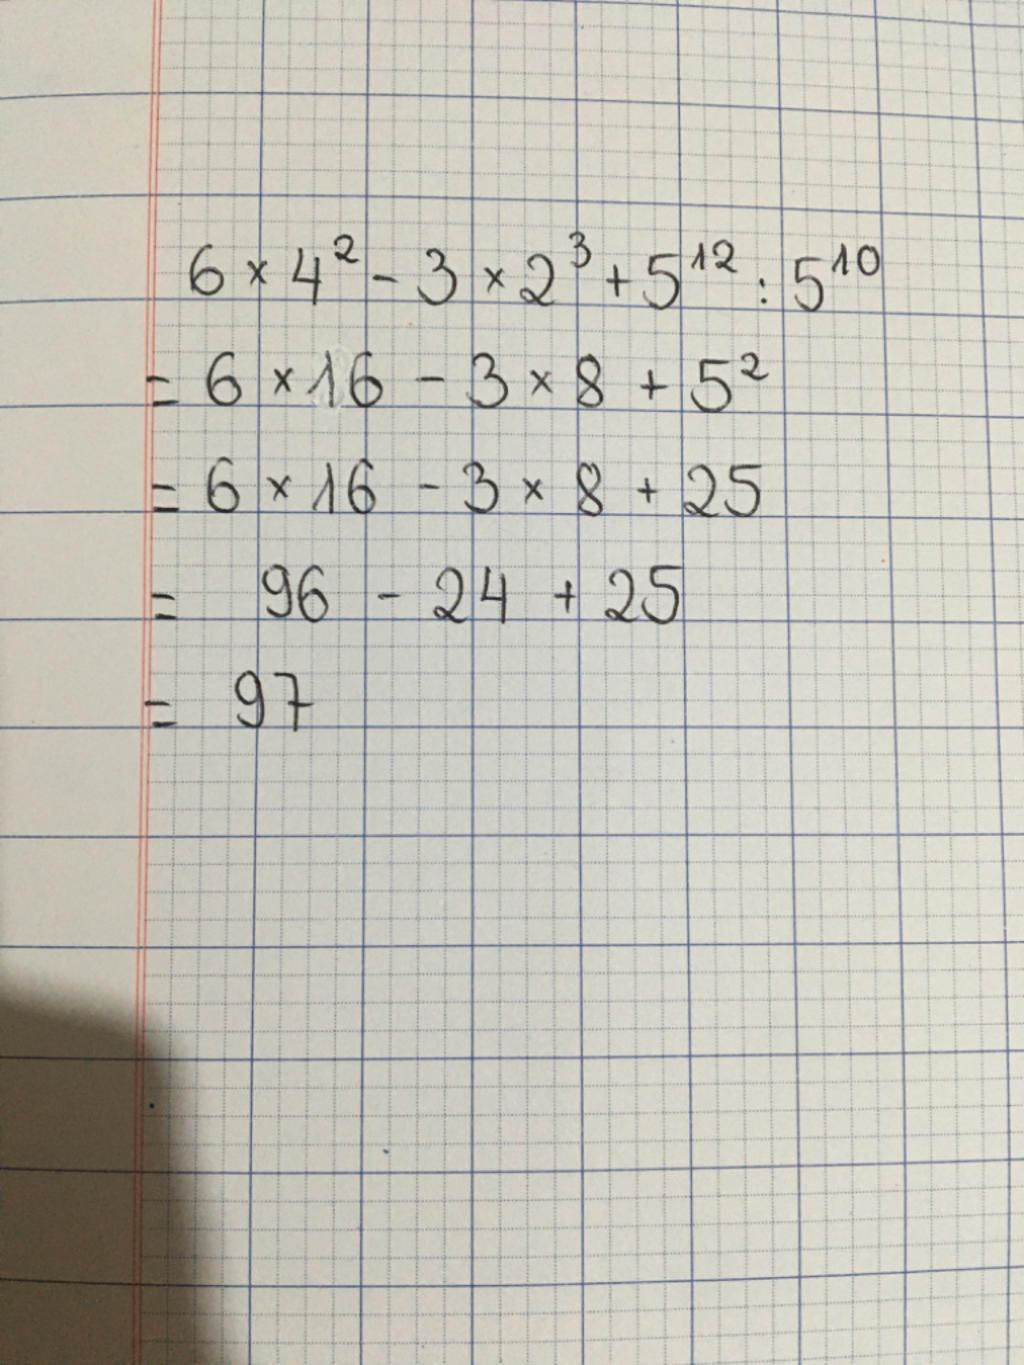 6 × 4² - 3 × 2³ + 5¹² : 5¹⁰
= 6 × 16 - 3 × 8 + 5²
= 6 × 16 - 3 × 8 + 25
= 96 - 24 + 25
= 97